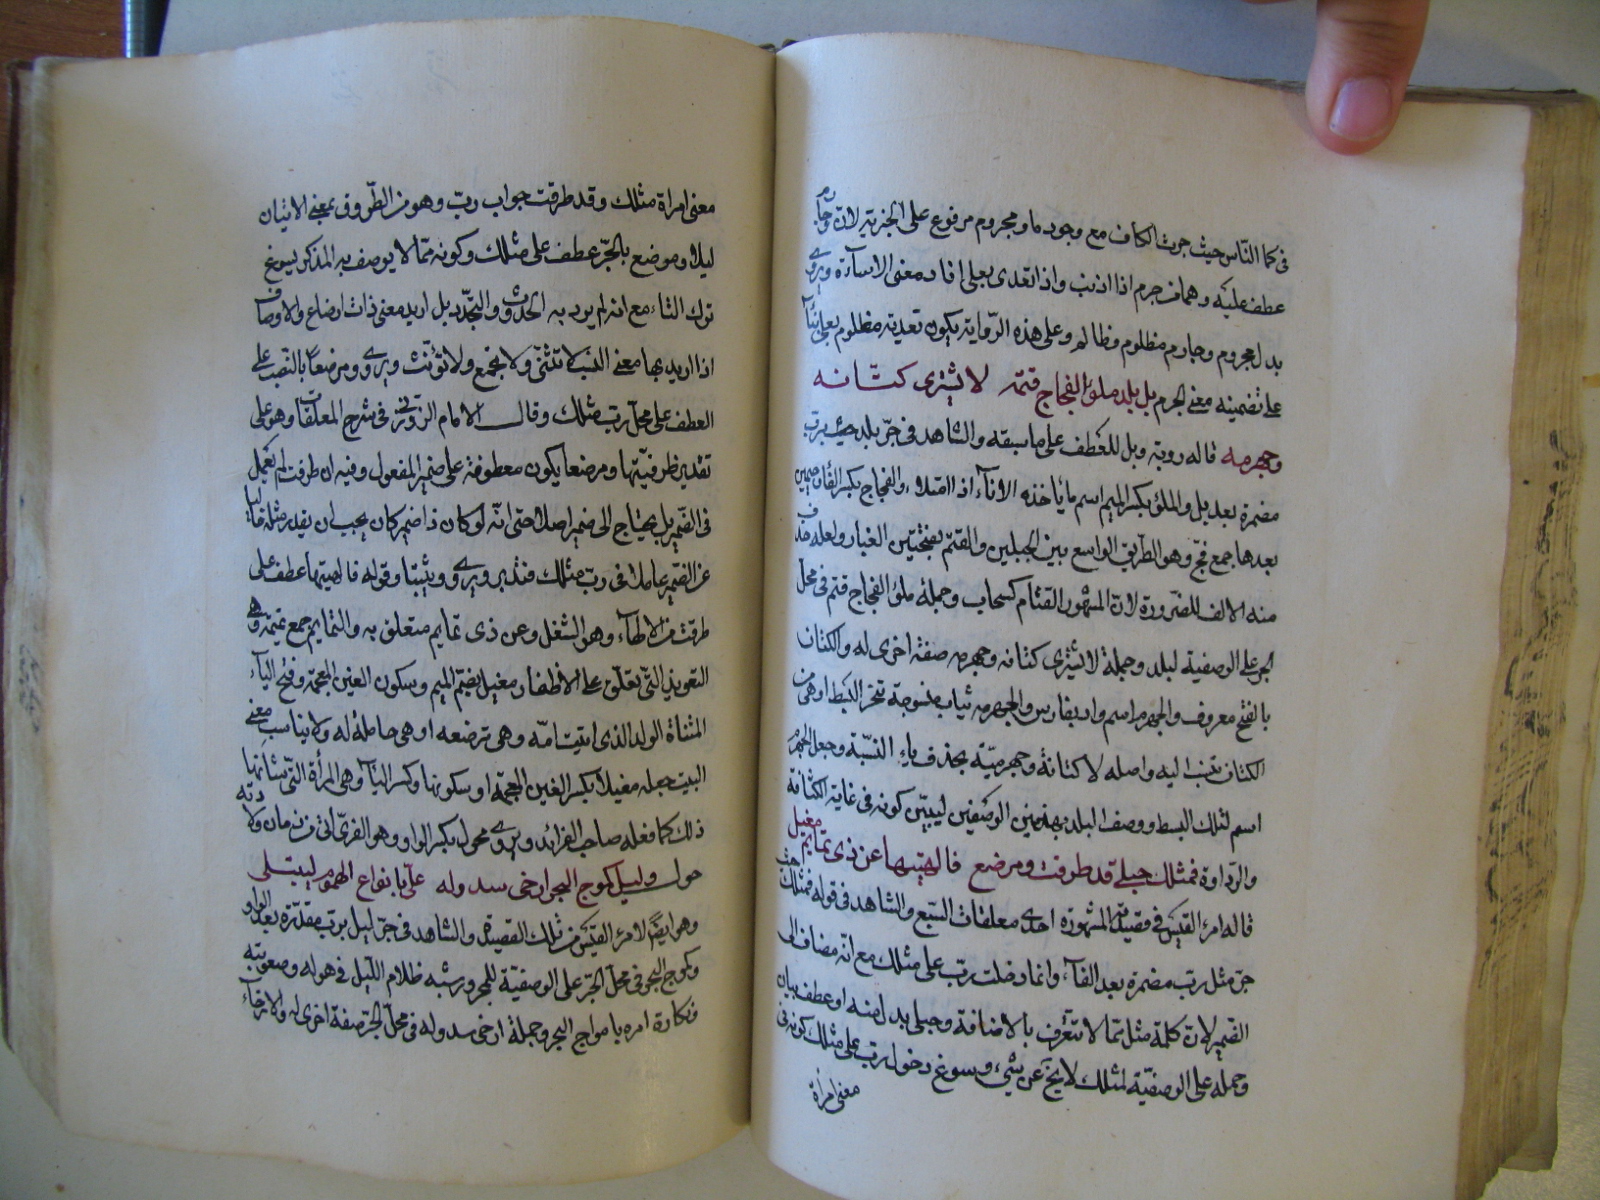 فى كما النّاس حيث جرت الكاف مع وجود ما ومجروم مرفوع على الخبرية لان وجارم
عطف عليه وهما من جرم اذا اذنب واذا تعدى بعلى افاد معنى الاساءة ويروى
بدل مجروم وجارم مظلوم وظالم وعلى هذه الرّواية يكون تعدية مظلوم بعلى بناء
على تضمينه معنى الجرم بل بلد ملؤ الفجاج قتمه لا يشترى كتّانه
وجهرمه قاله روبة وبل للعطف على ما سبقه والشاهد فى جرّ بلد حيث برب
مضمرة بعد بل والملؤ بكسر الميم اسم ما يأخذه الاناء اذا امتلاء والفجاج بكسر الفاء وجيمين
بعدها جمع فجّ وهو الطريق الواسع بين الجبلين والقتم بفتحتين الغبار ولعله حذف
منه الالف للضرورة لان المشهور القتام كسحاب وجملة ملؤ الفجاج قتم فى محلّ
الجر على الوصفية لبلد وجملة لا يشترى كتانه وجهرمه صفة اخرى له والكتان
بالفتح معروف والجهرم اسم واد بفارس والجهرمه ثياب منسوجة تنحو البسط اوهى من
الكتان تنسب اليه واصله لا كتانة وجهرميّة بحذف ياء النسبة وجعل الجهرم
اسم لتلك البسط ووصف البلد بهذين الوصفين ليبيّن كونه فى غاية الكثافة
والرداوة فمثلك حبلى قد طرقت ومرضع فالهيتها عن ذى تمايم مغيل
قاله امرء القيس فى قصيدته المشهورة احدى معلقات السّبع والشاهد فى قوله فمثلك حيث
جرّ مثل برب مضمرة بعد الفآء وانما دخلت ربّ على مثلك مع انّه مضاف الى
الضمير لان كلمة مثل ممّا لا يتعرّف بالاضافة وحبلى بدل منه او عطف بيان
وحمله على الوصفيّة لمثلك لا يخ عن شىء وسوغ دخول ربّ على مثلك كونه فى
معنى امرأة
معنى امراة مثلك وقد طرقت جواب ربّ وهو من الطّروق بمعنى الاتيان
ليلا ومرضع بالجرّ عطف على مثلك وكونه ممّا لا يوصف به المذكر يسوغ
ترك التاء مع انه لم يرد به الحدوث والتجدّد بل اريد معنى ذات ارضاع والاوصاف
اذا اريد بها معنى النسب لا تثنّى ولا تجمع ولا تؤنّث ويروى ومرضعا بالنصب على
العطف على محلّ رب مثلك وقال الامام الزوزنى فى شرح المعلقات وهو على
تقدير ظرفيّتها ومرضعا يكون معطوفة على ضمير المفعول وفيه ان طرقت لم يعمل
فى الضّمير بل يحتاج الى ضمير اصلا حتى انّه لو كان ذا ضمير كان يجب ان يقدر مثله خاليا
عن الضمير عاملا فى ربّ مثلك فتدبر ويروى وثيبتا وقوله فالهيتها عطف على
طرقت من الالهاء وهو الشغل وعن ذى تمايم متعلق به والتمايم جمع تميمة وهى
التعويذ التّى تعلّق على الاطفال ومغيل بضمّ الميم وسكون الغين المعجمة وفتح الياء
المثناة الولد الذى اتيت امّه وهى ترضعه او هى حاملة له ولا يناسب معنى
البيت جعله مغيلا بكسر الغين المعجمة او سكونها وكسر الياء وهى المرأة التّى شانها
ذلك كما فعله صاحب الفرائد ويروى محول بكسر الواو وهو الذى اتى من زمان ولادته
حول وليل كموج البحر ارخى سدوله علىّ بانواع الهموم ليبتلى
وهو ايضا لامرء القيس من تلك القصيدة والشاهد فى جرّ ليل برب مقدّرة بعد الواو
وكموج البحر فى محلّ الجرّ على الوصفيّة للمجرور شبه ظلام الليل فى هوله وصعوبته
ونكارة امره بامواج البحر وجملة ارخى سدوله فى محلّ الجرّ صفة اخرى له والارخاء